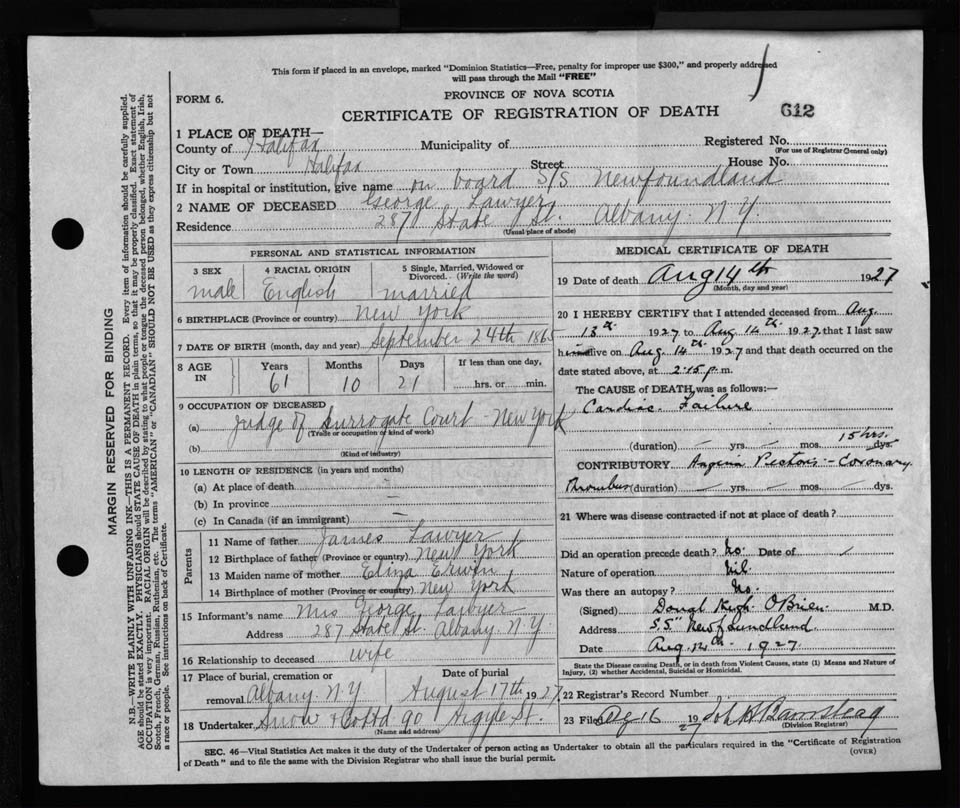 This form if placed in an envelope, marked "Dominion Statistics—Free, penalty for improper use $300," and properly addressed
will pass through the Mail "FREE"
FORM 6.
PROVINCE OF NOVA SCOTIA
CERTIFICATE OF REGISTRATION OF DEATH
612
1 PLACE OF DEATH—
County of Halifax Municipality of Registered No.
(For use of Registrar General only)
City or Town Halifax Street House No.
If in hospital or institution, give name on board S/S Newfoundland
2 NAME OF DECEASED George Lawyer
Residence 287 State St. Albany. N.Y.
(Usual place of abode)
PERSONAL AND STATISTICAL INFORMATION
3 SEX 4 RACIAL ORIGIN 5 Single, Married, Widowed or Divorced. (Write the word)
male English married
6 BIRTHPLACE (Province or country) New York
7 DATE OF BIRTH (month, day and year) September 24th 1865
8 AGE IN Years Months Days If less than one day,
61 10 21 hrs. or min.
9 OCCUPATION OF DECEASED
(a) Judge of Surrogate Court - New York
(Trade or occupation or kind of work)
(b)
(Kind of industry)
10 LENGTH OF RESIDENCE (in years and months)
(a) At place of death —
(b) In province —
(c) In Canada (if an immigrant) —
Parents
11 Name of father James Lawyer
12 Birthplace of father (Province or country) New York
13 Maiden name of mother Eliza Erwin
14 Birthplace of mother (Province or country) New York
15 Informant's name Mrs George Lawyer
Address 287 State St. Albany. N.Y.
16 Relationship to deceased wife
17 Place of burial, cremation or removal Albany. N.Y. Date of burial August 17th 1927
18 Undertaker Snow & Co Ltd 90 Argyle St.
(Name and address)
MEDICAL CERTIFICATE OF DEATH
19 Date of death Aug 14th 1927
(Month, day and year)
20 I HEREBY CERTIFY that I attended deceased from Aug.
13th 1927 to Aug 14th 1927 that I last saw
him alive on Aug. 14th 1927 and that death occurred on
date stated above, at 2.15 p.m.
The CAUSE of DEATH was as follows:—
Cardiac Failure
15 hrs.
(duration) — yrs. — mos. dys.
CONTRIBUTORY Angina Pectoris - Coronary
Thrombus (duration) — yrs. — mos. — dys.
21 Where was disease contracted if not at place of death?
Did an operation precede death? No. Date of /
Nature of operation Nil
Was there an autopsy? No.
(Signed) O'Brien M.D.
Address S.S. "Newfoundland
Date Aug. 14th 1927.
State the Disease causing Death, or in death from Violent Causes, state (1) Means and Nature of
Injury, (2) whether Accidental, Suicidal or Homicidal.
22 Registrar's Record Number
23 Filed 16 1927
(Division Registrar)
SEC. 46—Vital Statistics Act makes it the duty of the Undertaker or person acting as Undertaker to obtain all the particulars required in the "Certificate of Registration
of Death" and to file the same with the Division Registrar who shall issue the burial permit.
(OVER)
MARGIN RESERVED FOR BINDING
N.B.—WRITE PLAINLY WITH UNFADING INK—THIS IS A PERMANENT RECORD. Every item of information should be carefully supplied.
AGE should be stated EXACTLY. PHYSICIANS should STATE CAUSE OF DEATH in plain terms, so that it may be properly classified. Exact statement of
OCCUPATION is very important. RACIAL ORIGIN will be described by stating to what people or tongue the deceased person belonged, whether English, Irish,
Scotch, French, German, Russian, Ruthenian, etc. The terms "AMERICAN" or "CANADIAN" SHOULD NOT BE USED as they express citizenship but not
a race or people. See instructions on back of Certificate.